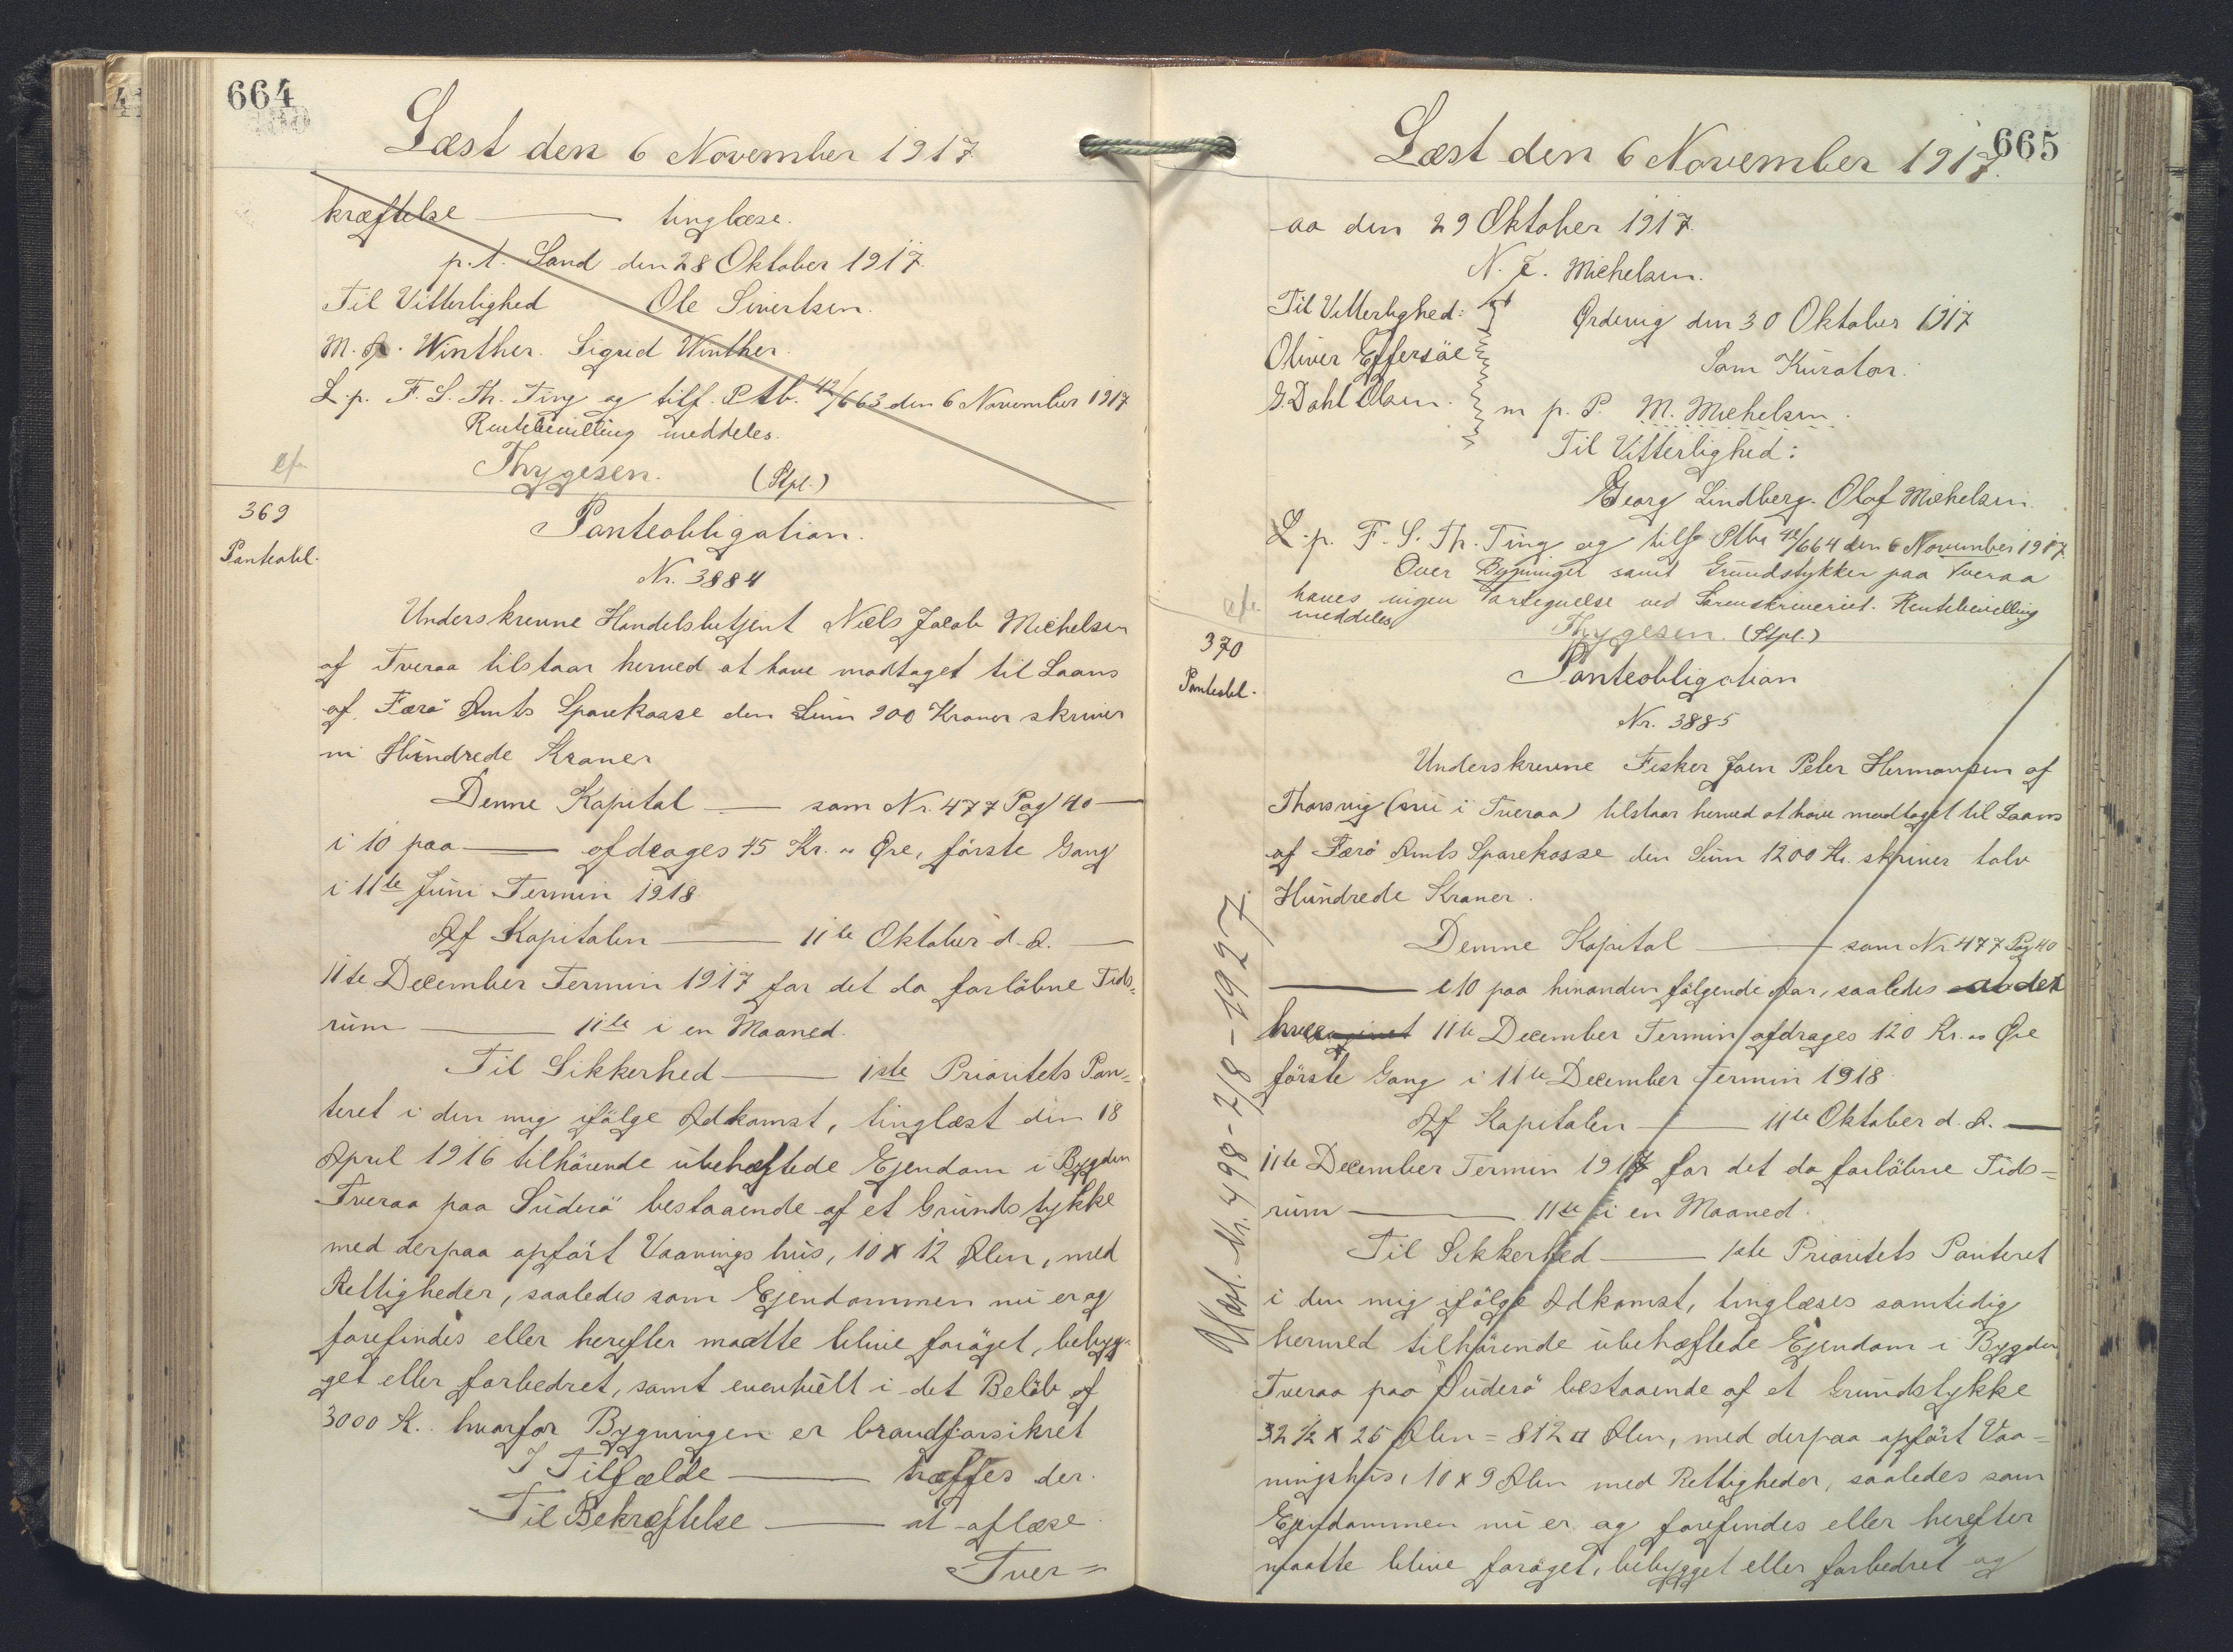 664
Læst den 6 November 1917
kræftelse — tinglæse.
p.t. Sand den 28 Oktober 1917.
Til Vitterlighed Ole Sivertsen.
M. A. Winther. Sigrid Winther.
L. p. F. S. Th. Ting og tilf. Ptb. 42/663 den 6 November 1917
Rentebevilling meddeles.
Thygesen. (Stpl.)
369
Panteobl.
Panteobligation.
Nr. 3884
Underskrevne Handelsbetjent Niels Jacob Michelsen
af Tveraa tilstaar herved at have modtaget til Laans
af Færö Amts Sparekasse den Sum 900 Kroner skriver
ni Hundrede Kroner
Denne Kapital — som Nr. 477 Pag 40 —
i 10 paa — afdrages 45 Kr. " Øre, förste Gang
i 11te Juni Termin 1918
Af Kapitalen — 11te Oktober d. A. —
11te December Termin 1917 for det da forlöbne Tids=
rum — 11te i en Maaned.
Til Sikkerhed — 1ste Prioritets Pan=
teret i den mig ifölge Adkomst, tinglæst den 18
April 1916 tilhörende ubehæftede Ejendom i Bygden
Tveraa paa Suderö bestaaende af et Grundstykke
med derpaa opfört Vaaningshus, 10 x 12 Alen, med
Rettigheder, saaledes som Ejendommen nu er og
forefindes eller herefter maatte blive foröget, bebyg-
get eller forbedret, samt eventuelt i det Belöb af
3000 K. hvorfor Bygningen er brandforsikret
I Tilfælde — træffes der.
Til Bekræftelse — at aflæse
Tver=
665
Læst den 6 November 1917.
aa den 29 Oktober 1917.
N. J. Michelsen.
Til Vitterlighed: Ørdevig den 30 Oktober 1917
Oliver Effersöe Som Kurator.
G. Dahl Olsen. m p. P. M. Michelsen.
Til Vitterlighed:
Georg Lindberg. Olaf Michelsen.
L. p. F. S. Th. Ting og tilf. Ptb. 42/664 den 6 November 1917.
Over Bygninger samt Grundstykker paa Tveraa
haves ingen Fortegnelse ved Sorenskriveriet. Rentebevilling
meddeles
Thygesen. (Stpl.)
370
Panteobl.
Panteobligation
Nr. 3885
Underskrevne Fisker Joen Peter Hermansen af
Thorsvig (nu i Tveraa) tilstaar herved at have modtaget til Laans
af Færö Amts Sparekasse den Sum 1200 Kr. skriver tolv
Hundrede Kroner.
Denne Kapital — som Nr. 477 Pag 40
— i 10 paa hinanden fölgende Aar, saaledes at der
hver 11te December Termin afdrages 120 Kr. " Øre
förste Gang i 11te December Termin 1918.
Af Kapitalen — 11te Oktober d. A. —
11te December Termin 1917 for det da forlöbne Tids=
rum — 11te i en Maaned.
Til Sikkerhed — 1ste Prioritets Panteret
i den mig ifölge Adkomst, tinglæses samtidig
hermed tilhörende ubehæftede Ejendom i Bygden
Tveraa paa Suderö bestaaende af et Grundstykke
32 ½ x 25 Alen = 812 □ Alen, med derpaa opfört Vaa=
ningshus, 10 x 9 Alen med Rettigheder, saaledes som
Ejendommen nu er og forefindes eller herefter
maatte blive foröget, bebygget eller forbedret og
Nr. 498 - 2/8 - 1927.